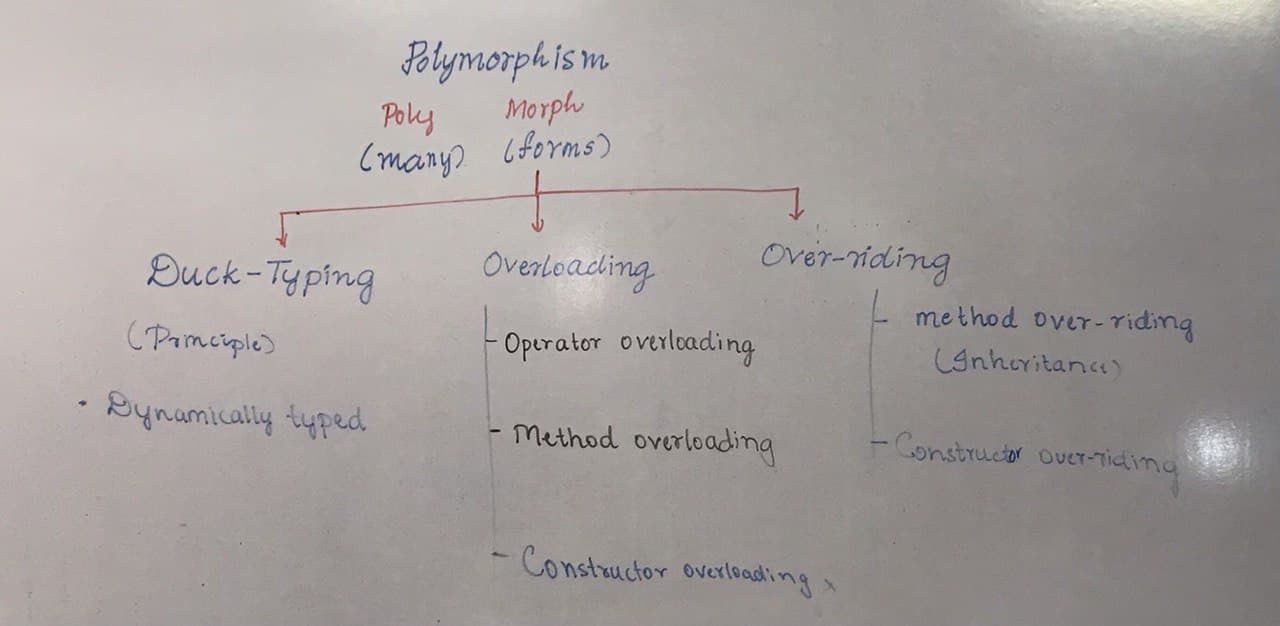 Polymorphism
Poly Morph
(many) (forms)
Duck-Typing
(Principle)
• Dynamically typed
Overloading
- Operator overloading
- Method overloading
- Constructor overloading x
Over-riding
- method over-riding
(Inheritance)
- Constructor over-riding